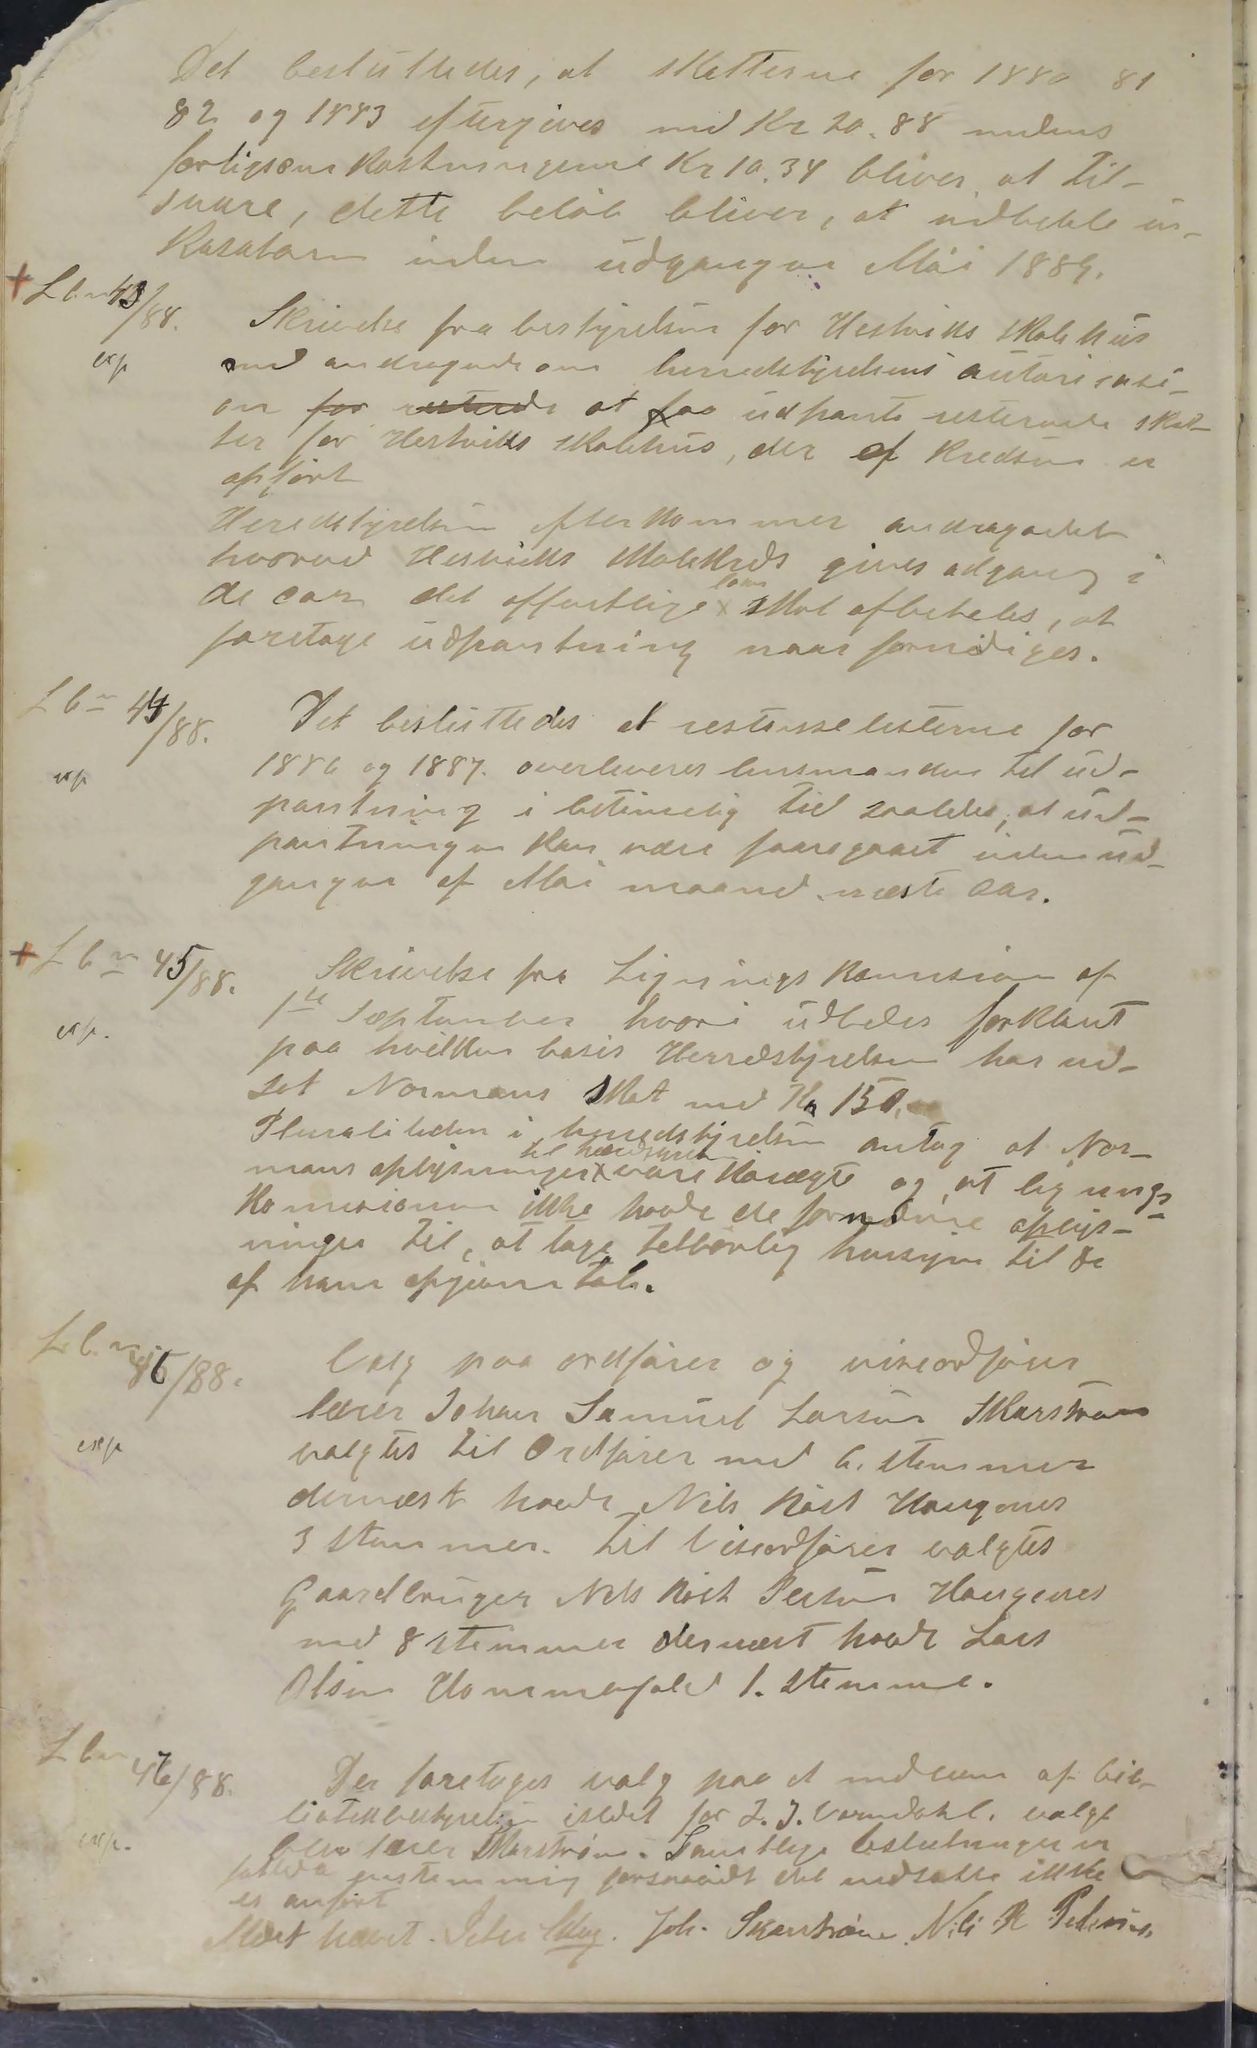 Det besluttedes, at skatterne for 1880 81
82 og 1883 eftergives med Kr 20.88 medens
Kr 10.34 bliver at til-
svare, dette beløb bliver, at indbetale in-
inden udgangen Mai 1889.
+ Lbn 43/88.
exp
Skrivelse fra bestyrelsen for Hestviks skolehus
med andragende om herredstyrelsens autorisasi-
on for resterede at faa udpante resterende skat-
ter for Hestviks skolehus, der af Kredsen er
opført
Heredstyrelsen efterkommer andragendet
hvorved Hestviks skolekreds gives adgang i
de aar det offentlige x laan skal afbetales, at
foretage udpantning naar fornødiges.
Lbn 44/88.
exp
Det besluttedes at restanselisterne for
1886 og 1887. overleveres lensmanden til ud-
pantning i betimelig tid saaledes, at ud-
pantningen kan være foregaaet inden ud-
gangen af Mai maaned næste aar.
+ Lbn 45/88.
exp.
Skrivelse fra Ligningskommisionen af
1ste September hvori udbedes forklaret
paa hvilken basis Herredstyrelsen har ned-
sat Normans skat med Kr 150.
Pluraliteten i herredstyrelsen antog at Nor-
mans oplysninger x til herredstyrelsen vare korægte og at lignings-
komisionen ikke havde de fornødne oplys-
ninger til, at tage tilbørlig hensyn til de
af ham opgivne tab.
Lbn 46/88.
exp
Valg paa ordfører og viseordfører
lærer Johan Samuel Larsen Skarstrøm
valgtes til Ordfører med 6. stemmer
dernæst havde Nils Røst Haugenes
3 stemmer. til Viseordfører valgtes
Gaardbruger Nils Røst Persen Haugenes
med 8 stemmer dernæst havde Lars
Olsen 1. stemme.
Lbn 47/88.
exp.
Der foretoges valg paa et medlem af bib-
liotekbestyrelsen istedet for J. J. valgt
blev lærer Skarstrøm. Samtlige beslutninger er
fattede enstemmig forsaavidt det modsatte ikke
er anført
hævet. Peter Joh. Skarstrøm. Nils R Pedersen